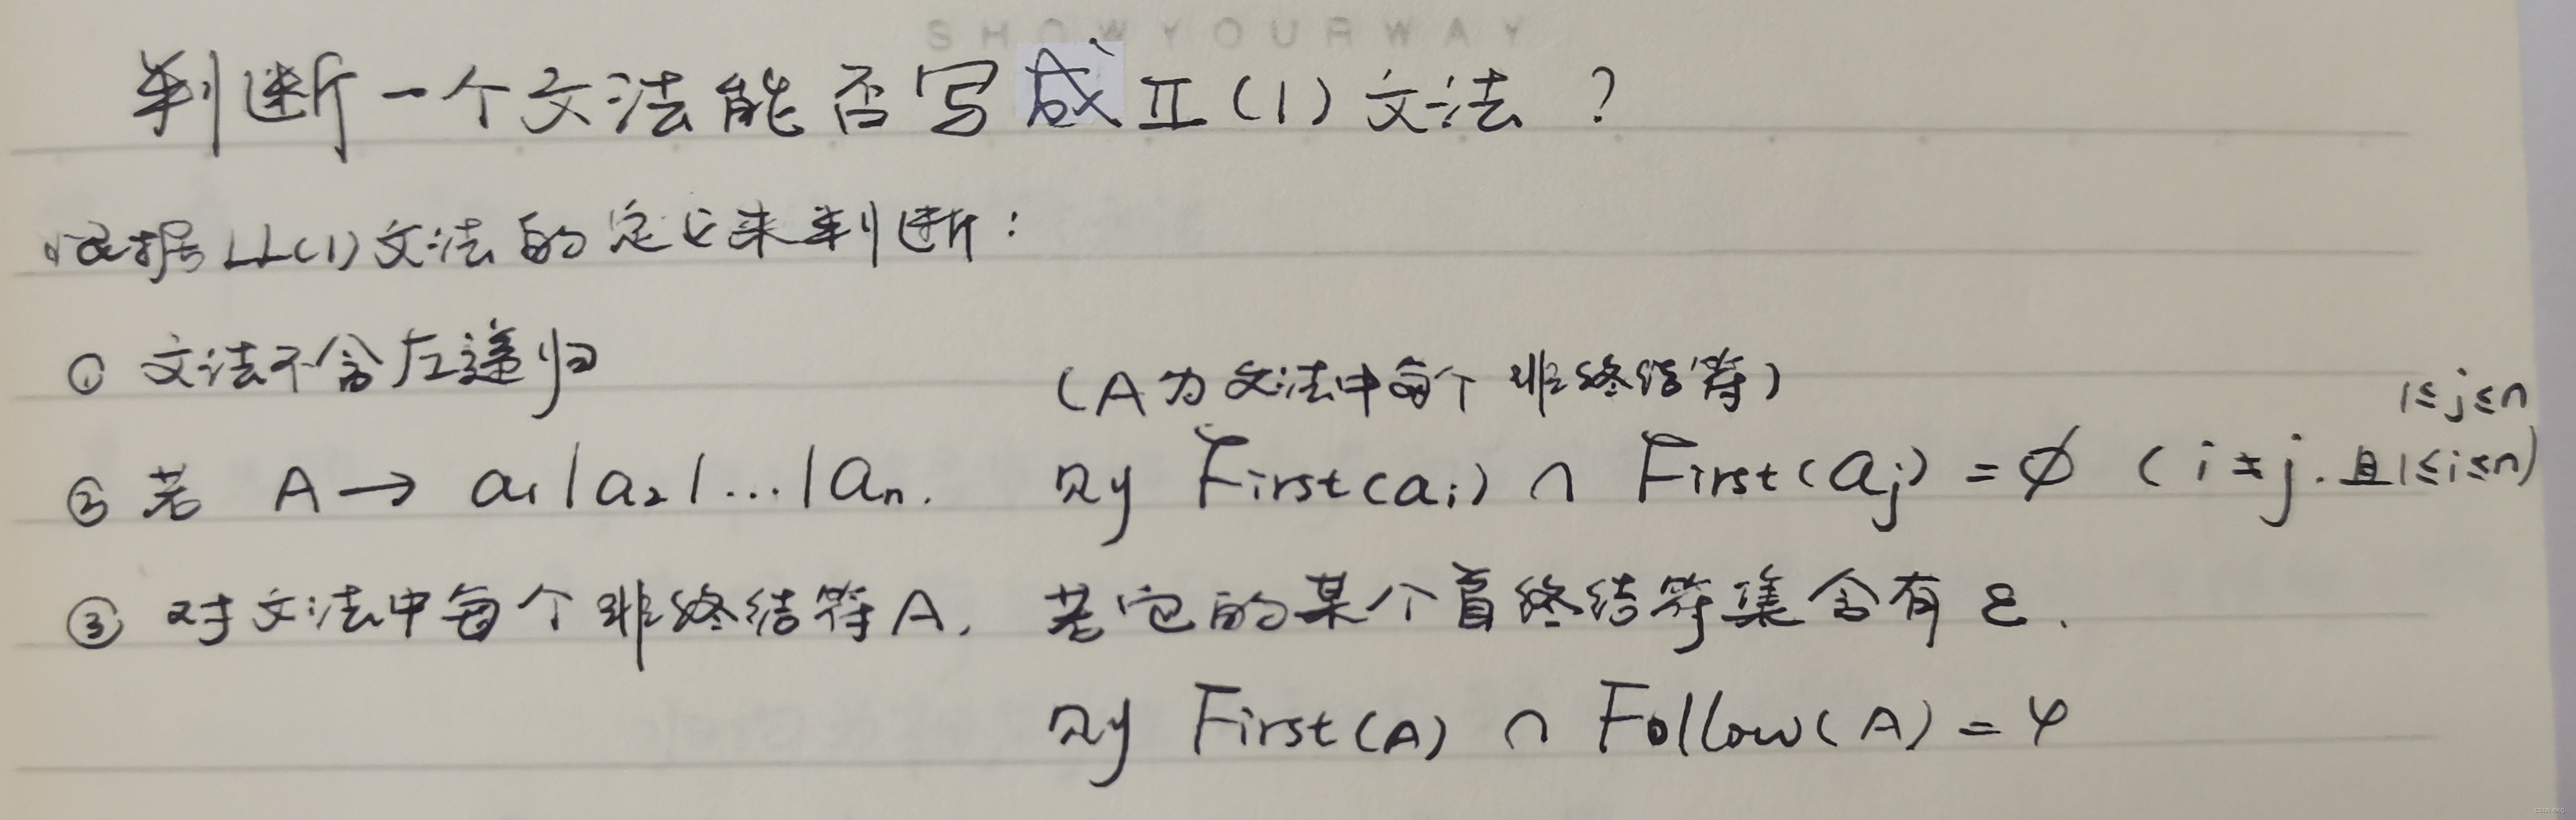 SHOWYOURWAY
判断一个文法能否写成II(1)文法?
根据LL(1)文法的定义来判断:
① 文法不含左递归
(A为文法中每个非终结符)
1≤j≤n
② 若 A → a₁|a₂|...|aₙ. 则 First(aᵢ) ∩ First(aⱼ) = ∅ (i≠j.且1≤i≤n)
③ 对文法中每个非终结符A, 若它的某个首终结符集含有ε.
则 First(A) ∩ Follow(A) = φ